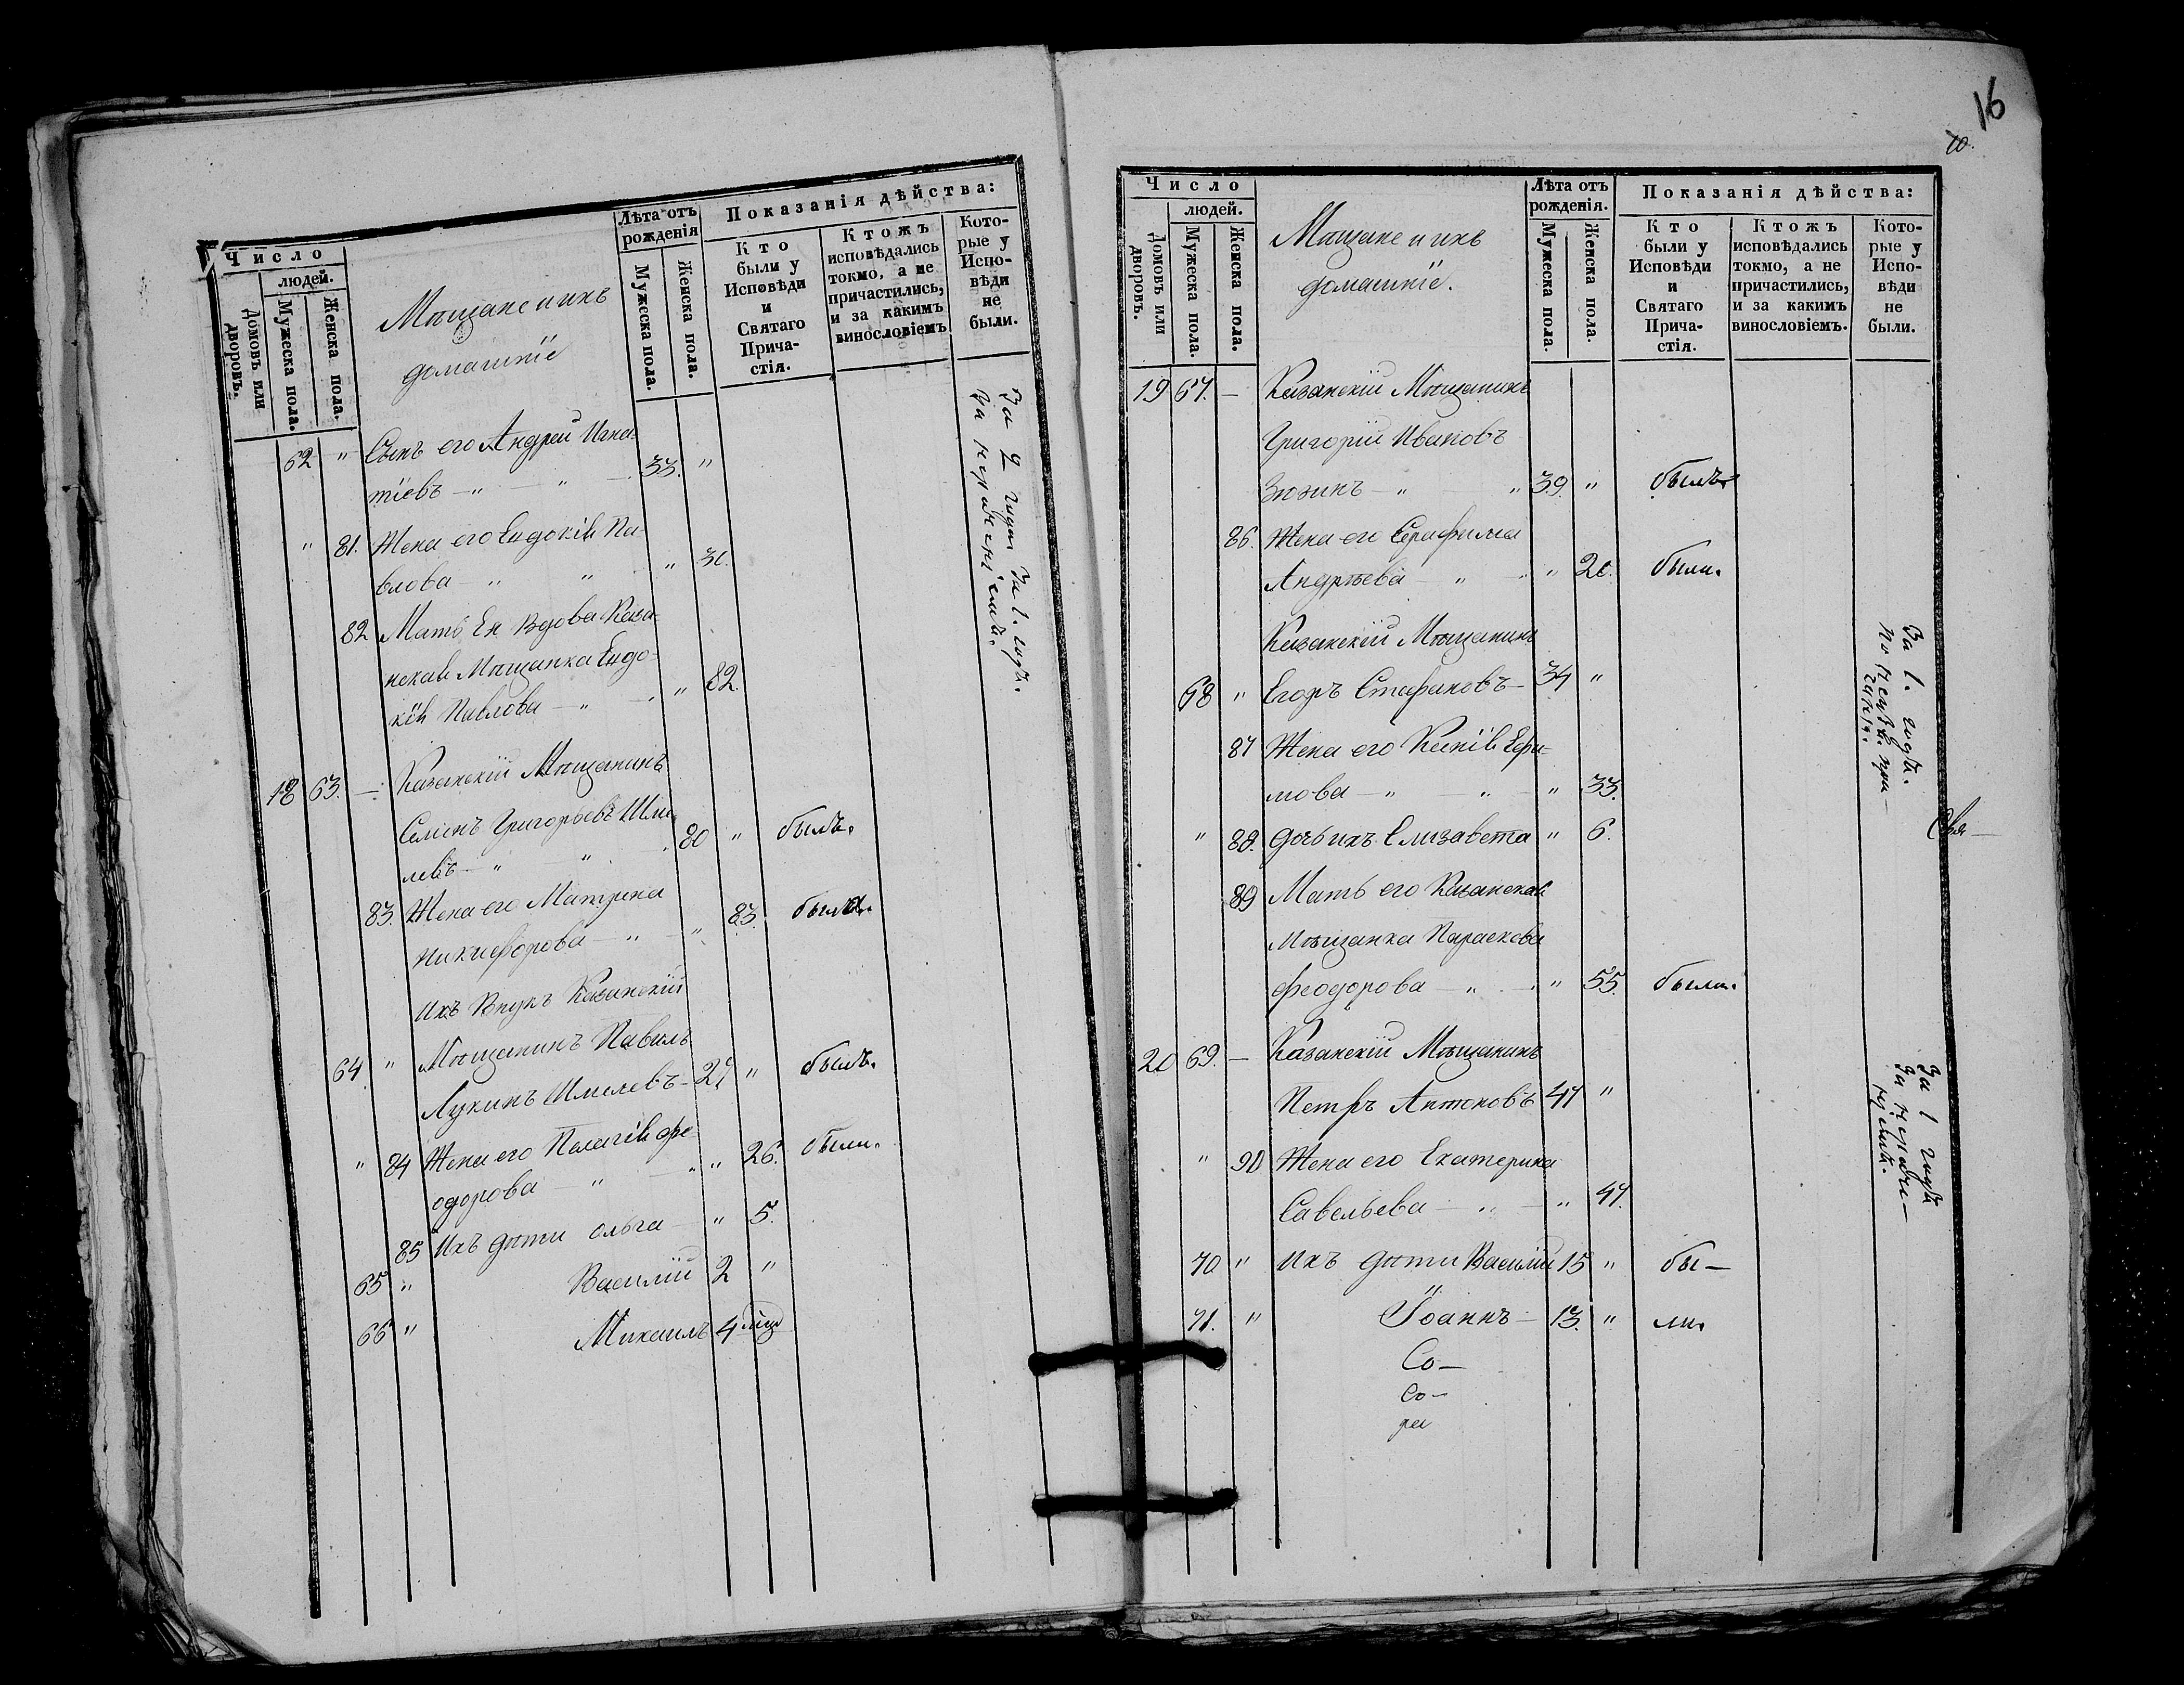 Число
людей.
Домовъ или дворовъ.
Мужеска пола.
Женска пола.
Мѣщане и ихъ
домашніе
Лѣта отъ
рожденія
Мужеска пола.
Женска пола.
Показанія дѣйства:
Кто
были у
Исповѣди
и
Святаго
Прича-
стія.
Ктожъ
исповѣдались
токмо, а не
причастились,
и за какимъ
винословіемъ
Кото-
рые у
Испо-
вѣди
не
были.
62 " Сынъ его Андрей Игна-
тіевъ — " — " — 33. "
" 81. Жена его Евдокія Па-
влова — " " " 30.
82 Мать Ея Вдова Каза-
нская Мѣщанка Евдо-
кія Павлова — " — " 82.
За 2 года За 1. годъ.
За нерадѣніемъ.
18 63. — Казанскій Мѣщанинъ
Семенъ Григорьевъ Шме-
левъ — " " 80 " былъ.
83. Жена его Матрена
Никифорова — " — " 83. была.
Ихъ Внукъ Казанскій
64. " Мѣщанинъ Павелъ
Лукинъ Шмелевъ — 27 " былъ.
" 84 Жена его Пелагія Фе-
одорова — " — " " 26. были.
85 Ихъ дѣти Ольга — " 5.
65 " Василій 2 "
66 " Михаилъ 4 мѣц
16
10.
Число
людей.
Домовъ или дворовъ.
Мужеска пола.
Женска пола.
Мѣщане и ихъ
домашніе.
Лѣта отъ
рожденія.
Мужеска пола.
Женска пола.
Показанія дѣйства:
Кто
были у
Исповѣди
и
Святаго
Прича-
стія.
Ктожъ
исповѣдались
токмо, а не
причастились,
и за какимъ
винословіемъ.
Кото-
рые у
Испо-
вѣди
не
были.
19 67. — Казанскій Мѣщанинъ
Григорій Ивановъ
Зюзинъ — " " 39. " былъ
86. Жена его Серафима
Андрѣева — " — " 20. были.
Казанскій Мѣщанинъ
68 " Егоръ Стефановъ — 34 "
87 Жена его Ксенія Ефи-
мова — " — " — " 33.
" 88. дочь ихъ Елизавета " 6.
За 1. годъ.
89 Мать его Казанская
Мѣщанка Параскова
Феодорова — " — " 55. были.
20 69. — Казанскій Мѣщанинъ
Петръ Антоновъ 47 "
" 90 Жена его Екатерина
Савельева — " — " 47.
За 1 годъ
За нерадѣні-
емъ.
70. " Ихъ дѣти Василій 15 " бы-
71. " Іоаннъ — 13. " ли.
Со-
Со-
ра
Свя-